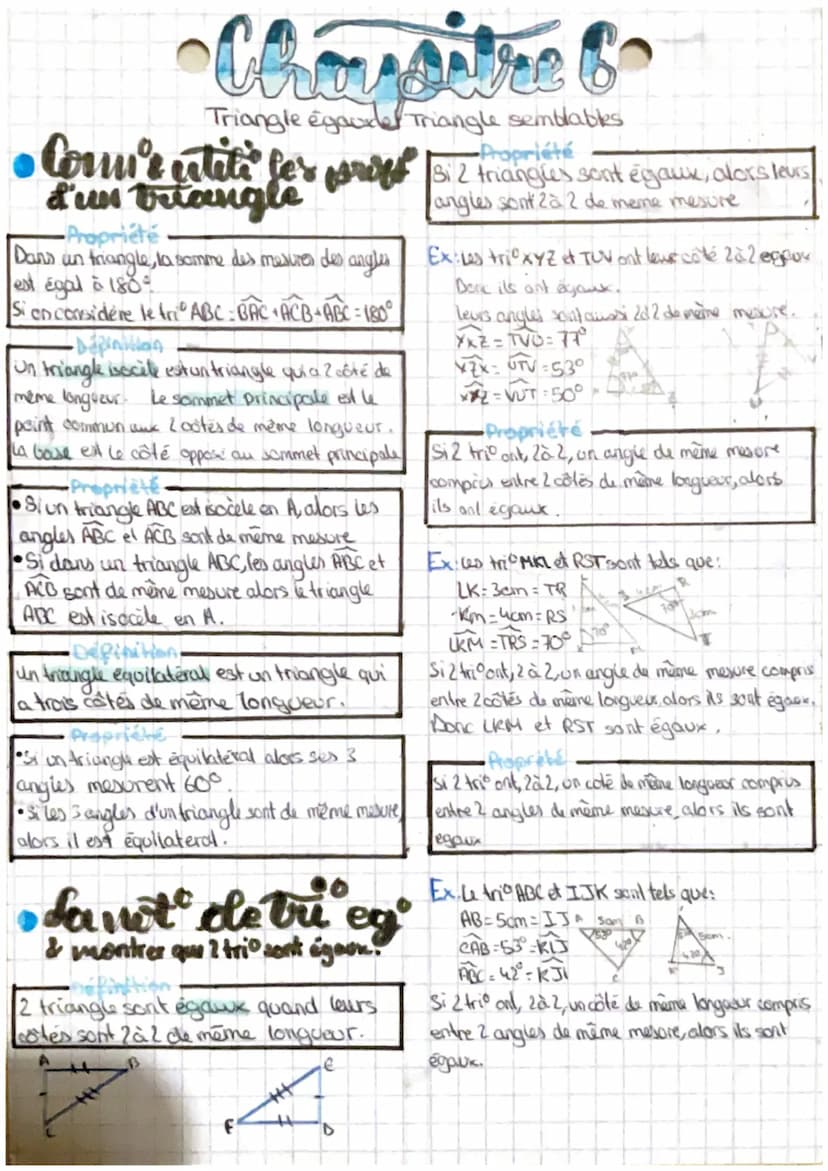 Chapitre 6
Triangle égaux et Triangle semblables
Conn° & utili° les prop°
d'un triangle
Propriété
Dans un triangle, la somme des mesures des angles
est égal à 180°.
Si on considére le tri° ABC : BAC + ACB + ABC = 180°
Définition
Un triangle isocèle est un triangle qui a 2 côté de
même longueur. Le sommet principale est le
point commun aux 2 côtés de même longueur.
La base est le côté opposé au sommet principale
Propriété
• Si un triangle ABC est isocèle en A, alors les
angles ABC et ACB sont de même mesure
• Si dans un triangle ABC, les angles ABC et
ACB sont de même mesure alors le triangle
ABC est isocèle en A.
Définition
Un triangle equilatéral est un triangle qui
a trois côtés de même longueur.
Propriété
• Si un triangle est équilatéral alors ses 3
angles mesurent 60°.
• Si les 3 angles d'un triangle sont de même mesure,
alors il est équilateral.
La not° de tri° eg°
& montrer que 2 tri° sont égaux.
Définition
2 triangle sont égaux quand leurs
côtés sont 2 à 2 de même longueur.
A B
C
E
F D
Propriété
Si 2 triangles sont égaux, alors leurs
angles sont 2 à 2 de meme mesure
Ex: Les tri° XYZ et TUV ont leurs côté 2 à 2 egaux
Donc ils ont égaux.
leurs angles sont aussi 2 à 2 de même mesure.
YXZ = TVU = 77°
YZX = UTV = 53°
XYZ = VUT = 50°
Propriété
Si 2 tri° ont, 2 à 2, un angle de même mesure
compris entre 2 côtés de même longueur, alors
ils ont égaux.
Ex: Les tri° MKL et RST sont tels que:
LK = 3cm = TR
KM = 4cm = RS
LKM = TRS = 70°
Si 2 tri° ont, 2 à 2, un angle de même mesure compris
entre 2 côtés de même longueur, alors ils sont égaux.
Donc LKM et RST sont égaux.
Propriété
Si 2 tri° ont, 2 à 2, un coté de même longueur compris
entre 2 angles de même mesure, alors ils sont
egaux
Ex: Le tri° ABC et IJK sont tels que:
AB = 5cm = IJ
CAB = 53° = KIJ
ABC = 42° = KJI
A 5cm B
53° 42°
C
5cm.
42°
J
Si 2 tri° ont, 2 à 2, un côté de même longueur compris
entre 2 angles de même mesure, alors ils sont
égaux.